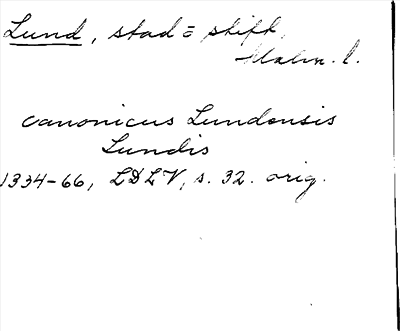 Lund, stad = stift,
Malm. l.
canonicus Lundensis
Lundis
1334-66, LDLV, s. 32. orig.